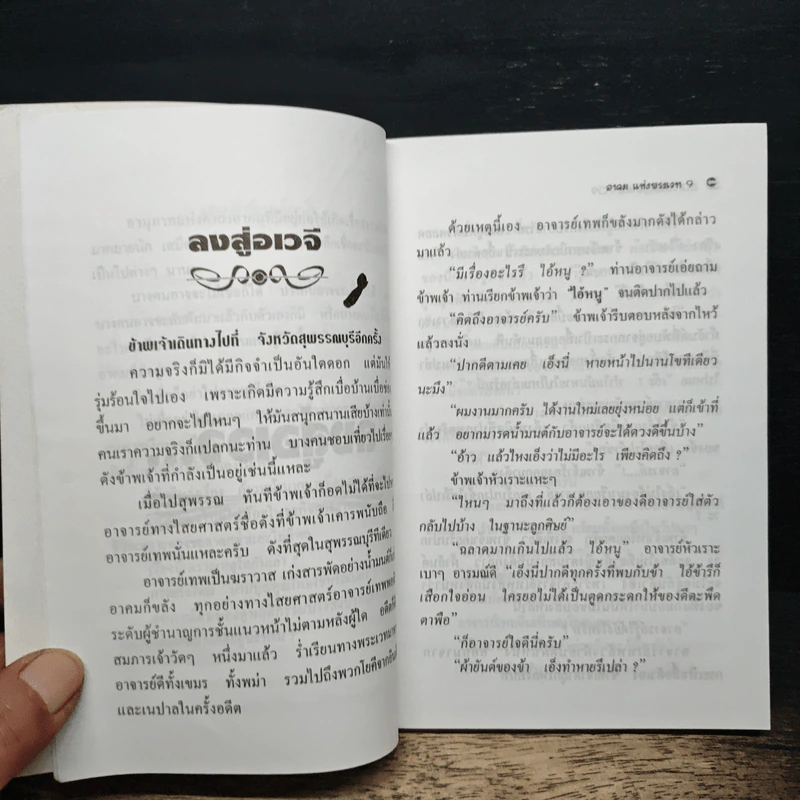 ลงสู่อเวจี
ข้าพเจ้าเดินทางไปที่ จังหวัดสุพรรณบุรีอีกครั้ง
ความจริงก็มิได้มีกิจจำเป็นอันใดดอก แต่มัน
รุ่มร้อนใจไปเอง เพราะเกิดมีความรู้สึกเบื่อบ้านเบื่อ
ขึ้นมา อยากจะไปไหนๆ ให้มันสนุกสนานเสียบ้างเท่านั้น
คนเราความจริงก็แปลกนะท่าน บางคนชอบเที่ยวไปเรื่อย
ดังข้าพเจ้าที่กำลังเป็นอยู่เช่นนี้แหละ
เมื่อไปสุพรรณ ทันทีข้าพเจ้าก็อดไม่ได้ที่จะไป
อาจารย์ทางไสยศาสตร์ชื่อดังที่ข้าพเจ้าเคารพนับถือ
อาจารย์เทพนั่นแหละครับ ดังที่สุดในสุพรรณบุรีทีเดียว
อาจารย์เทพเป็นฆราวาส เก่งสารพัดอย่างน้ำมนต์
อาคมก็ขลัง ทุกอย่างทางไสยศาสตร์อาจารย์เทพ
ระดับผู้ชำนาญการชั้นแนวหน้าไม่ตามหลังผู้ใด อดีต
สมภารเจ้าวัดๆ หนึ่งมาแล้ว ร่ำเรียนทางพระเวท
อาจารย์ดีทั้งเขมร ทั้งพม่า รวมไปถึงพวกโยคีจาก
และเนปาลในครั้งอดีต
อาคม แห่งขรณเวท 9
ด้วยเหตุนี้เอง อาจารย์เทพก็ขลังมากดังได้กล่าว
มาแล้ว
“มีเรื่องอะไรรึ ไอ้หนู ?” ท่านอาจารย์เอ่ยถาม
ข้าพเจ้า ท่านเรียกข้าพเจ้าว่า “ไอ้หนู” จนติดปากไปแล้ว
“คิดถึงอาจารย์ครับ” ข้าพเจ้ารีบตอบหลังจากไหว้
แล้วลงนั่ง
“ปากดีตามเคย เอ็งนี่ หายหน้าไปนานโขทีเดียว
นะมึง”
“ผมงานมากครับ ได้งานใหม่เลยยุ่งหน่อย แต่ก็เข้าที่
แล้ว อยากมารดน้ำมนต์กับอาจารย์จะได้ดวงดีขึ้นบ้าง”
“อ้าว แล้วไหงเอ็งว่าไม่มีอะไร เพียงคิดถึง ?”
ข้าพเจ้าหัวเราะแหะๆ
“ไหนๆ มาถึงที่แล้วก็ต้องเอาของดีอาจารย์ใส่ตัว
กลับไปบ้าง ในฐานะลูกศิษย์”
“ฉลาดมากเกินไปแล้ว ไอ้หนู” อาจารย์หัวเราะ
เบาๆ อารมณ์ดี “เอ็งนี่ปากดีทุกครั้งที่พบกับข้า ไอ้ข้ารึก็
เสือกใจอ่อน ใครยอไม่ได้เป็นตูดกระดกให้ของดีตะพึด
ตาพือ”
“ก็อาจารย์ใจดีนี่ครับ”
“ผ้ายันต์ของข้า เอ็งทำหายรึเปล่า ?”